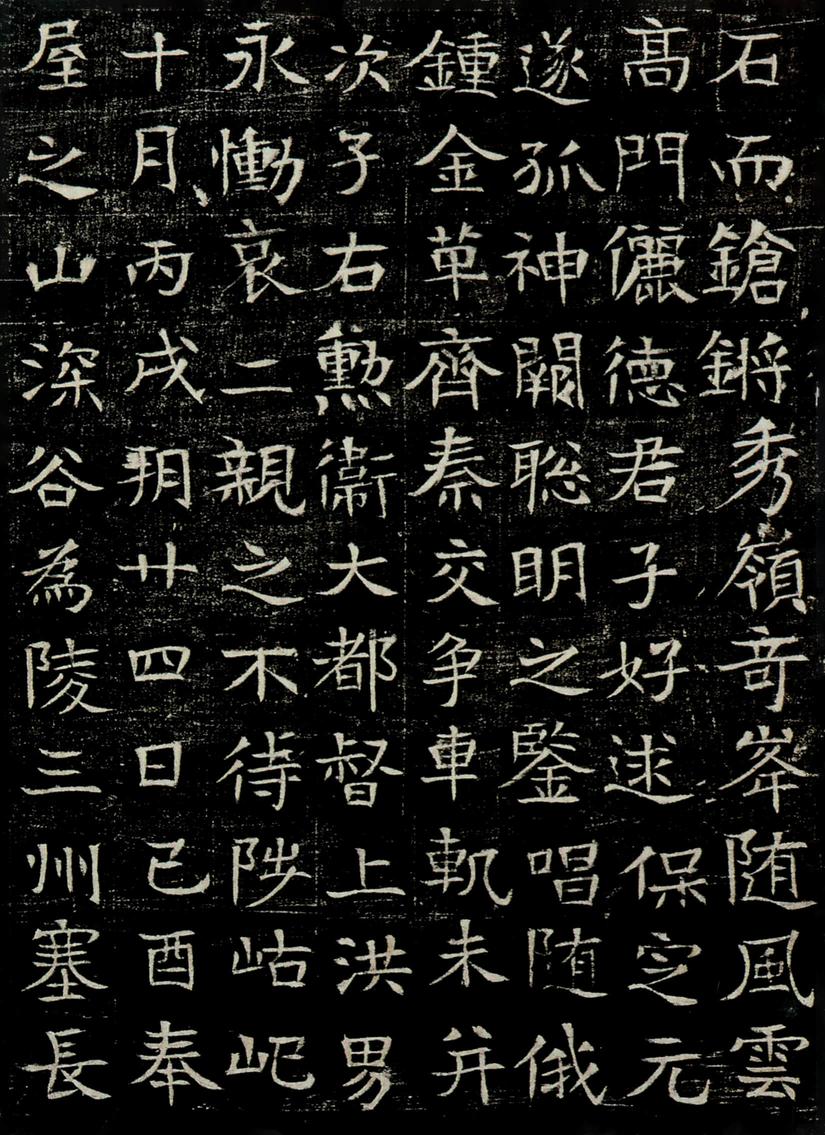 石而鎗鏘秀嶺竒峯随風雲
髙門儷德君子好逑保定元
遂孤神闕聡明之鑒唱随俄
鍾金革齊秦交争車軌未并
次子右勳衛大都督上洪男
永慟哀二親之不待陟岵屺
十月丙戌朔廿四日己酉奉
屋之山深谷為陵三州塞長